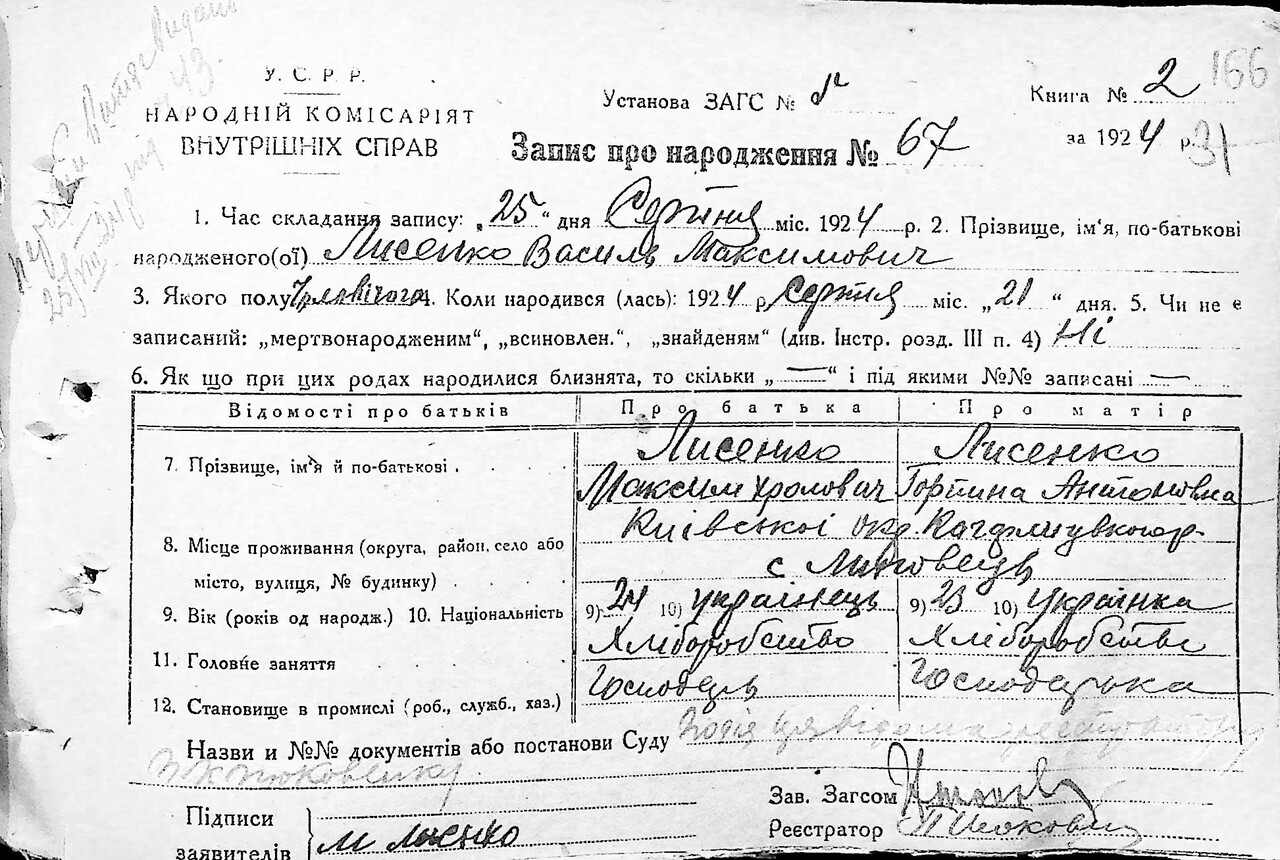 166
У. С. Р. Р.
НАРОДНІЙ КОМІСАРІЯТ
ВНУТРІШНІХ СПРАВ
Установа ЗАГС №
Книга № 2
за 1924 р. 31
Запис про народження № 67
1. Час складання запису: „25“ дня Серпня міс. 1924 р. 2. Прізвище, ім'я, по-батькові
народженого(ої) Лисенко Василь Максимович
3. Якого полу Чоловічого 4. Коли народився (лась): 1924 р. Серпня міс. „21“ дня. 5. Чи не є
записаний: „мертвонародженим“, „всиновлен.“, „знайденям“ (див. Інстр. розд. III п. 4) Ні
6. Як що при цих родах народилися близнята, то скільки „—“ і під якими №№ записані —
Відомості про батьків Про батька Про матір
7. Прізвище, ім'я й по-батькові . Лисенко Лисенко
Максим Хролович Горпина Антоновна
8. Місце проживання (округа, район, село або Київської окр. Кагарлицького р.
місто, вулиця, № будинку) с. Липовець
9. Вік (років од народж.) 10. Національність 9) 24 10) українець 9) 23 10) Українка
11. Головне заняття Хліборобство Хліборобство
12. Становище в промислі (роб., служб., хаз.) Господарь Господарька
Назви и №№ документів або постанови Суду
Підписи
заявителів М Лисенко
Зав. Загсом
Реєстратор